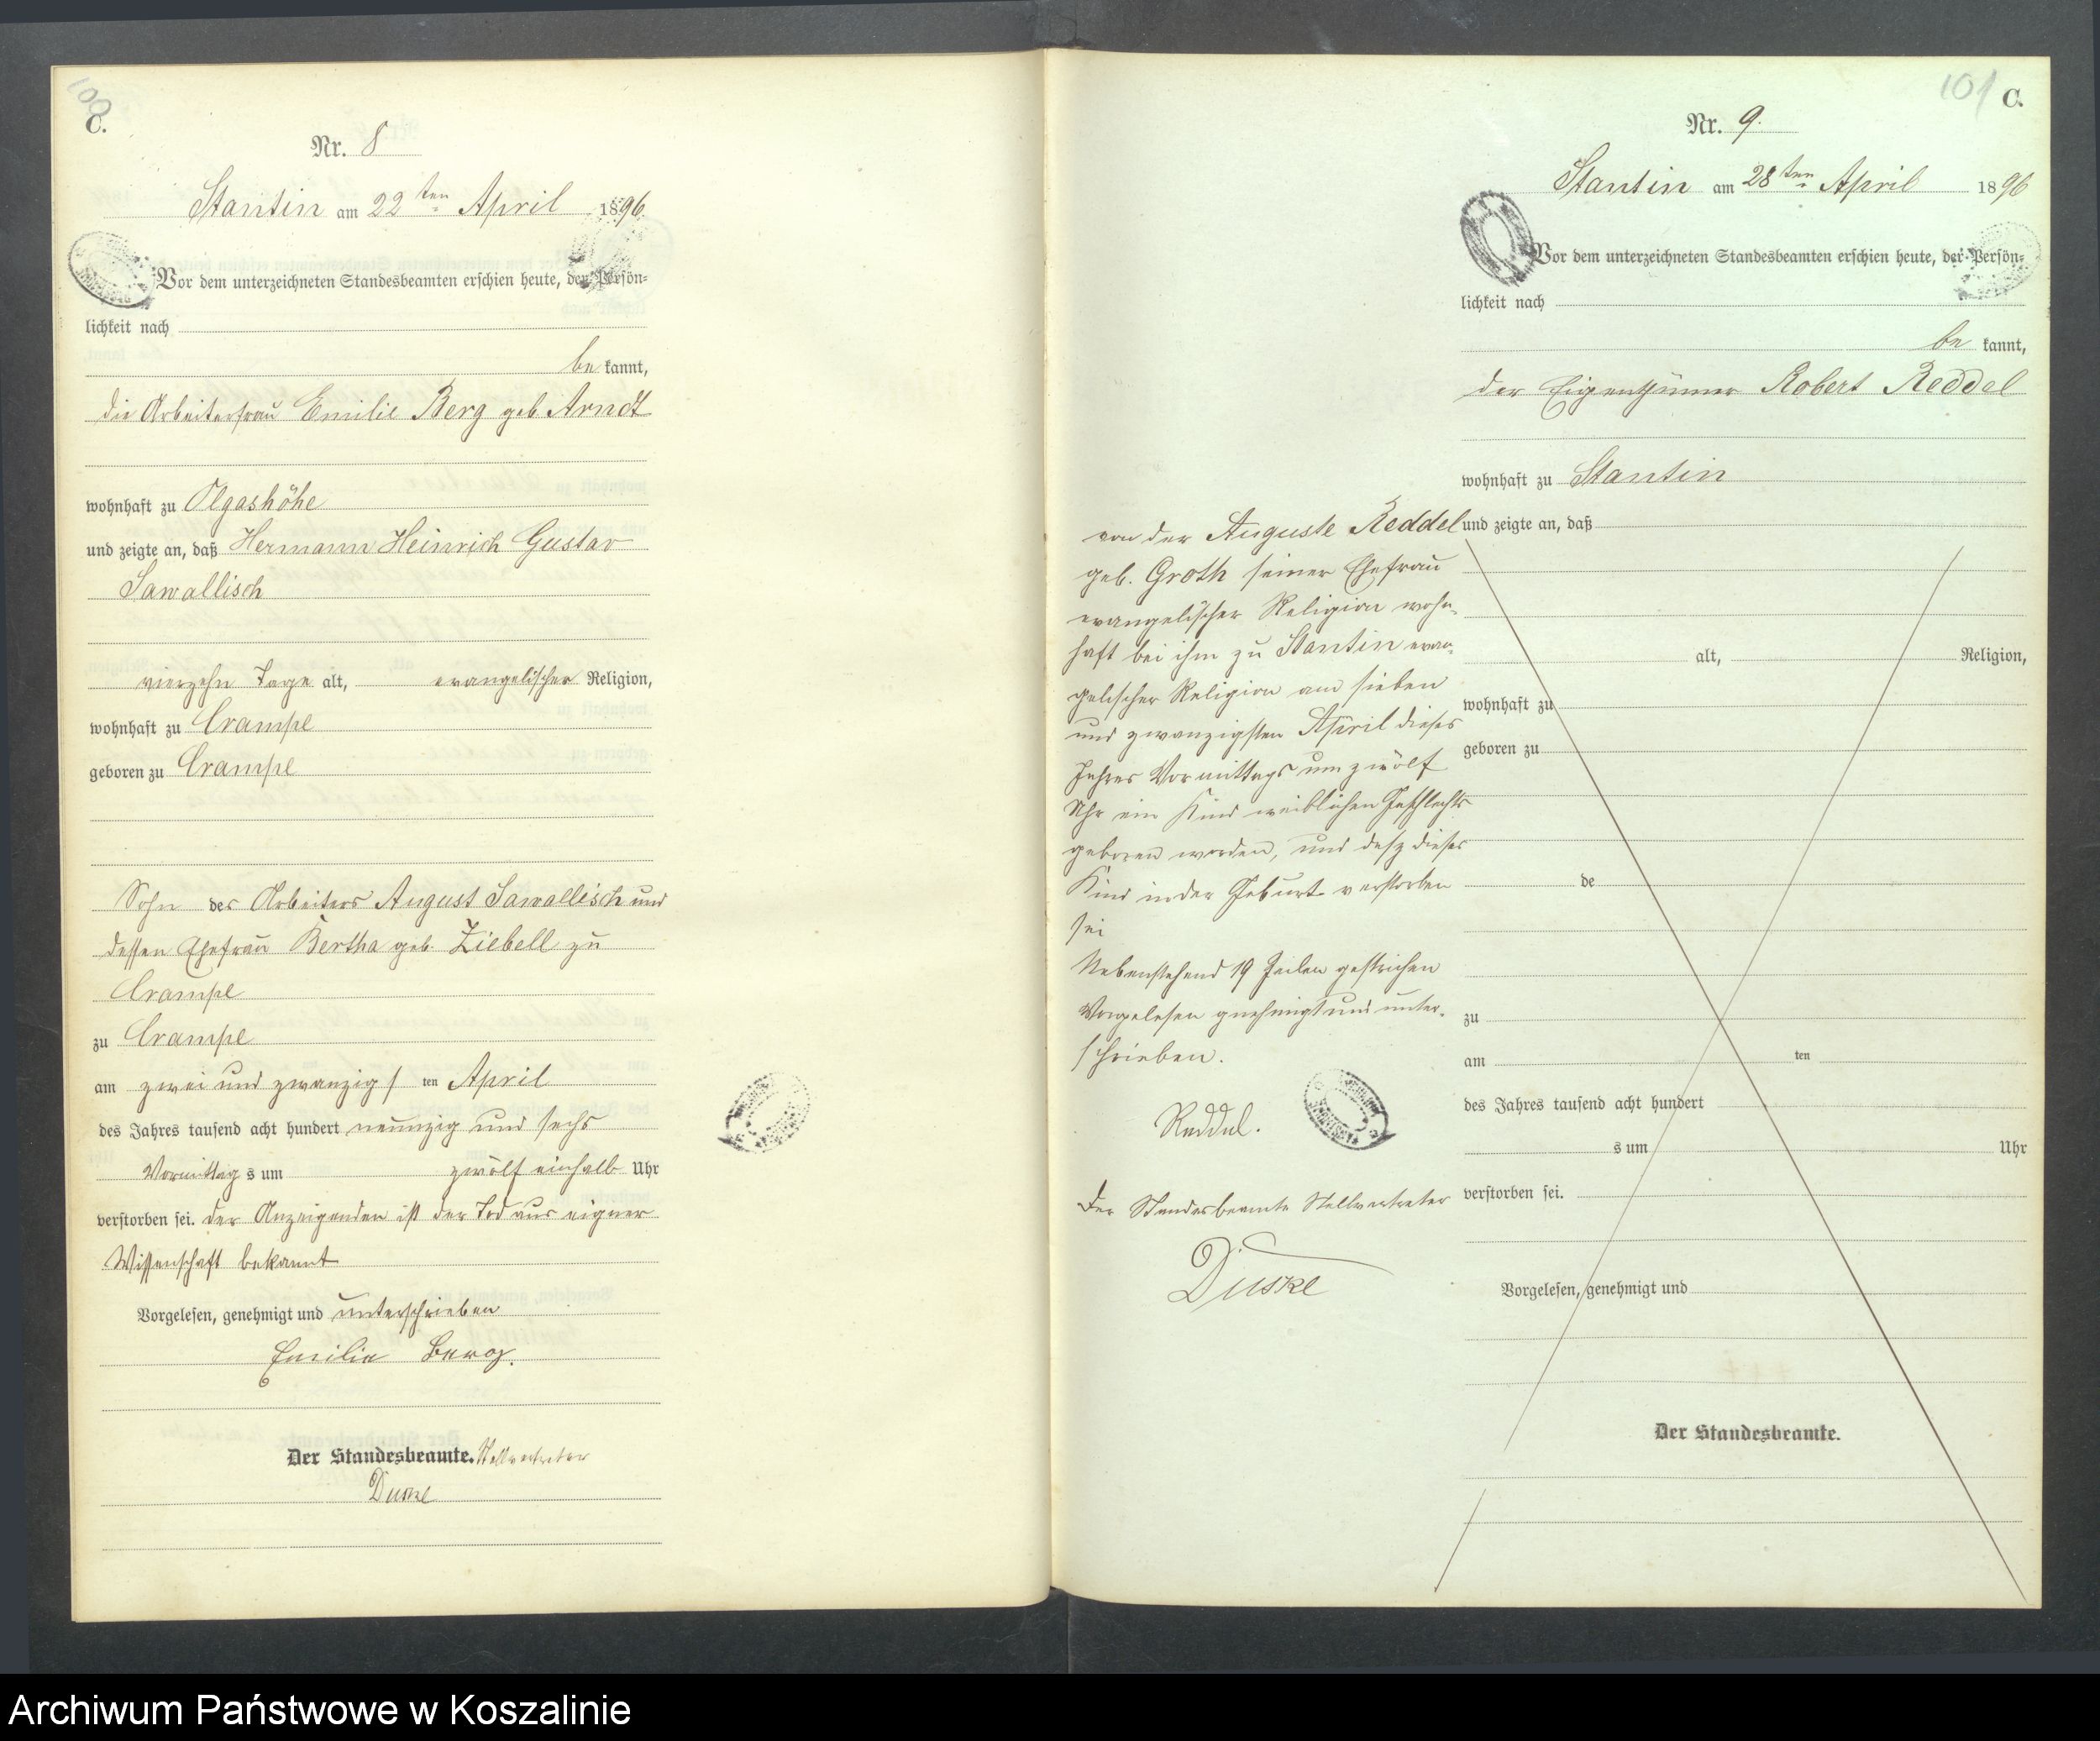 100
C.
Nr. 8
Stantin am 22ten April 1896.
Vor dem unterzeichneten Standesbeamten erschien heute, der Persön-
lichkeit nach
be kannt,
die Arbeiterfrau Emilie Berg geb. Arndt
wohnhaft zu Olgashöhe
und zeigte an, daß Hermann Heinrich Gustav
Sawallisch
vierzehn Tage alt, evangelischer Religion,
wohnhaft zu Crampe
geboren zu Crampe
Sohn des Arbeiters August Sawallisch und
dessen Ehefrau Bertha geb. Ziebell zu
Crampe
zu Crampe
am zwei und zwanzigs ten April
des Jahres tausend acht hundert neunzig und sechs
Vormittag s um zwölf einhalb Uhr
verstorben sei. der Anzeigenden ist der Tod aus eigner
Wissenschaft bekannt
Vorgelesen, genehmigt und unterschrieben
Emilie Berg.
Der Standesbeamte. Stellvertreter
Duske
101
C.
Nr. 9.
Stantin am 28ten April 1896
Vor dem unterzeichneten Standesbeamten erschien heute, der Persön-
lichkeit nach
be kannt,
der Eigenthümer Robert Reddel
wohnhaft zu Stantin
und zeigte an, daß
alt, Religion,
wohnhaft zu
geboren zu
de
zu
am ten
des Jahres tausend acht hundert
s um Uhr
verstorben sei.
Vorgelesen, genehmigt und
Der Standesbeamte.
von der Auguste Reddel
geb. Groth seiner Ehefrau
evangelischer Religion wohn-
haft bei ihm zu Stantin evan-
gelischer Religion am sieben
und zwanzigsten April dieses
Jahres Vormittags um zwölf
Uhr ein Kind weiblichen Geschlechts
geboren worden, und daß dieses
Kind in der Geburt verstorben
sei
Nebenstehend 19 Zeilen gestrichen
Vorgelesen genehmigt und unter-
schrieben.
Reddel.
Der Standesbeamte Stellvertreter
Duske
Archiwum Państwowe w Koszalinie